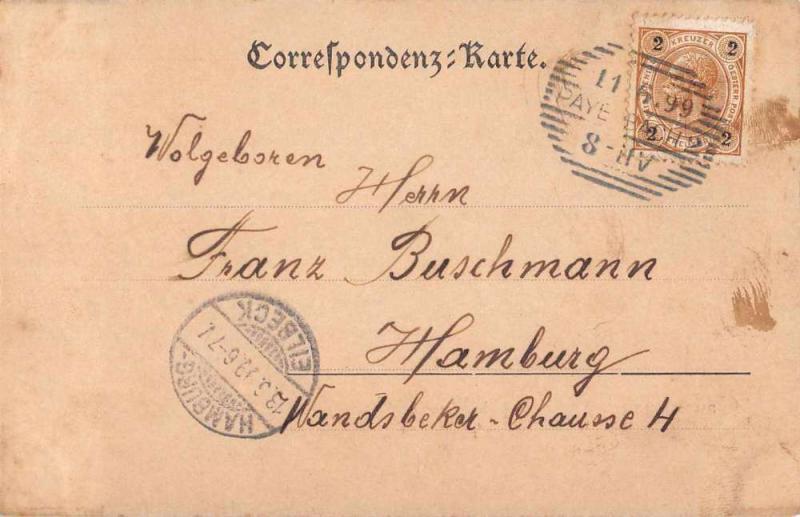 Correspondenz-Karte.
2 KREUZER 2
2 2
PAYERBACH
8-
Wolgeboren
Herrn
Franz Buschmann
Hamburg
Wandsbeker-Chausse 4
HAMBURG-
EILBECK